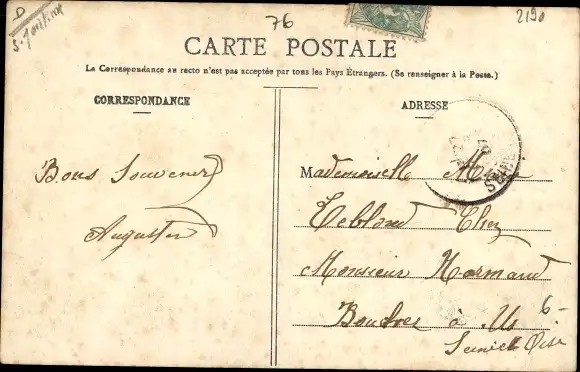 D
76
2190
CARTE POSTALE
La Correspondance au recto n'est pas acceptée par tous les Pays Étrangers. (Se renseigner à la Poste.)
CORRESPONDANCE
ADRESSE
Bons Souvenirs
Augustin
Mademoiselle
Leblond Chez
Monsieur Normand
à Us
6-
Seine et Oise